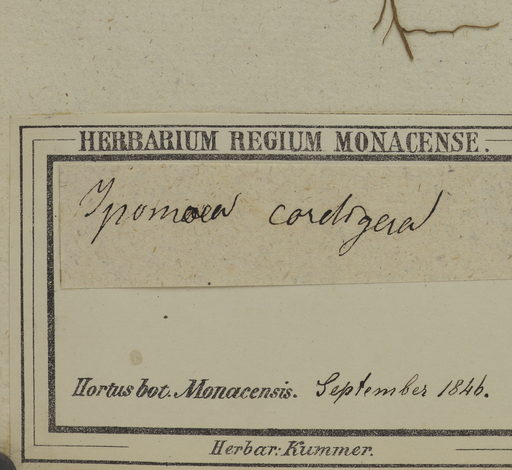 HERBARIUM REGIUM MONACENSE.
Ipomoea cordigera
Hortus bot. Monacensis. September 1846.
Herbar: Kummer.